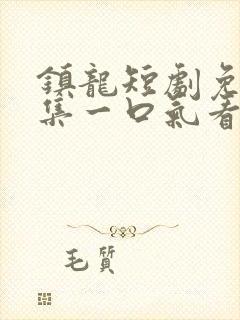 鎮龍短劇免
集一口氣看
毛質